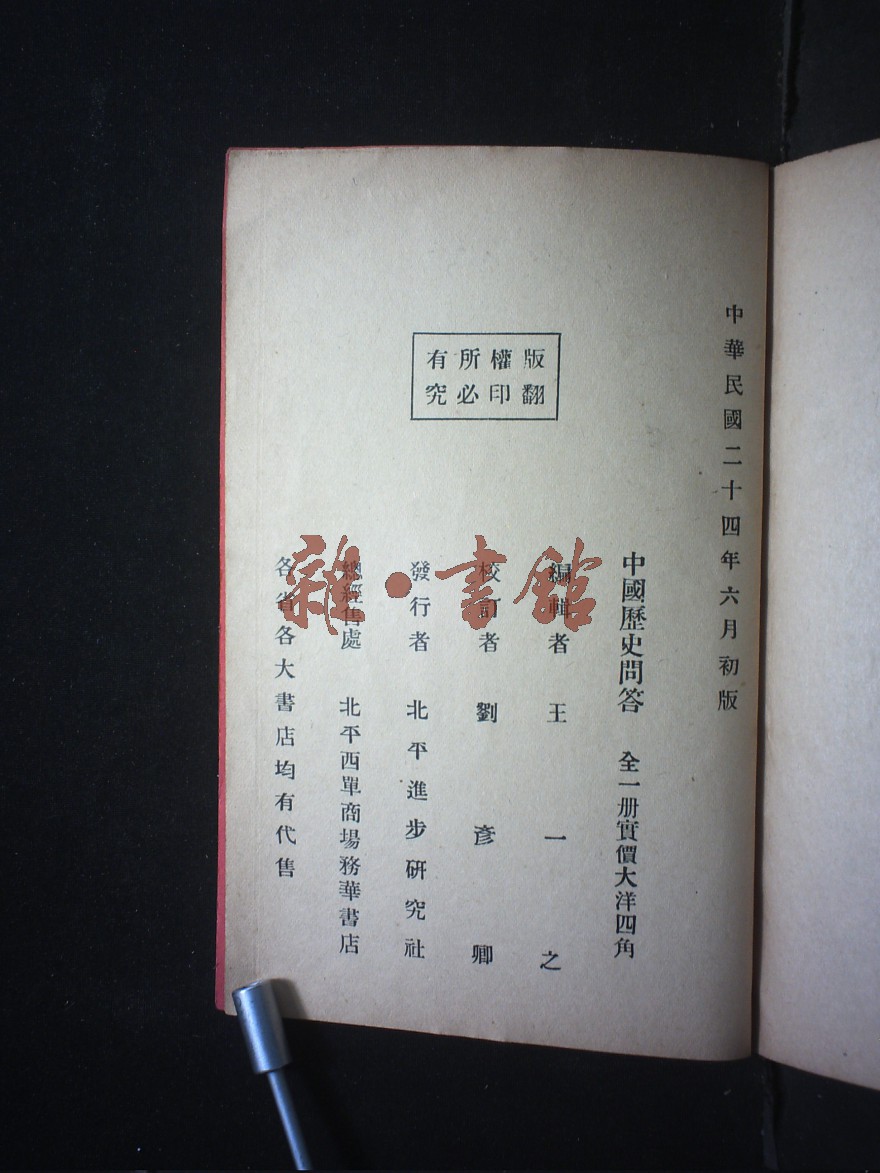 中華民國二十四年六月初版
版權所有
翻印必究
中國歷史問答 全一册實價大洋四角
編輯者 王一之
校訂者 劉彥卿
發行者 北平進步研究社
總經售處 北平西單商場務華書店
各省各大書店均有代售
雜·書館